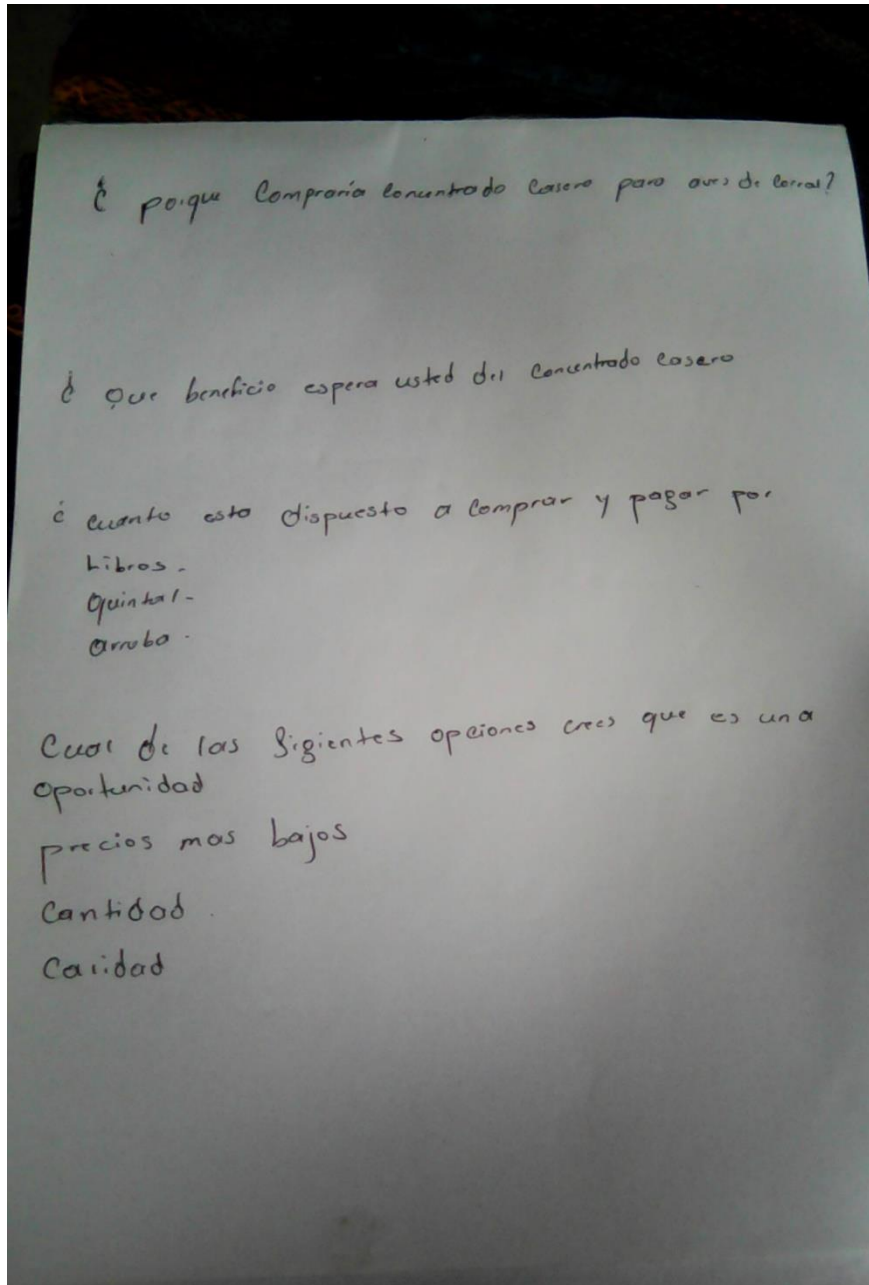 ¿ porque Compraria Concentrado Casero para aves de Corral?
¿ Que beneficio espera usted del Concentrado casero
¿ cuanto esta dispuesto a Comprar y pagar por
Libras.
quintal-
arruba.
Cual de las Sigientes opciones crees que es una
oportunidad
precios mas bajos
Cantidad.
Calidad